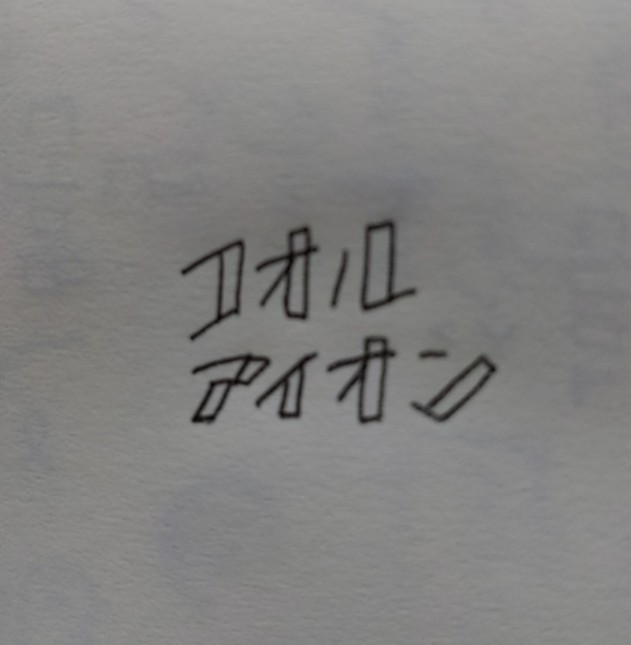 コオル
アイオン